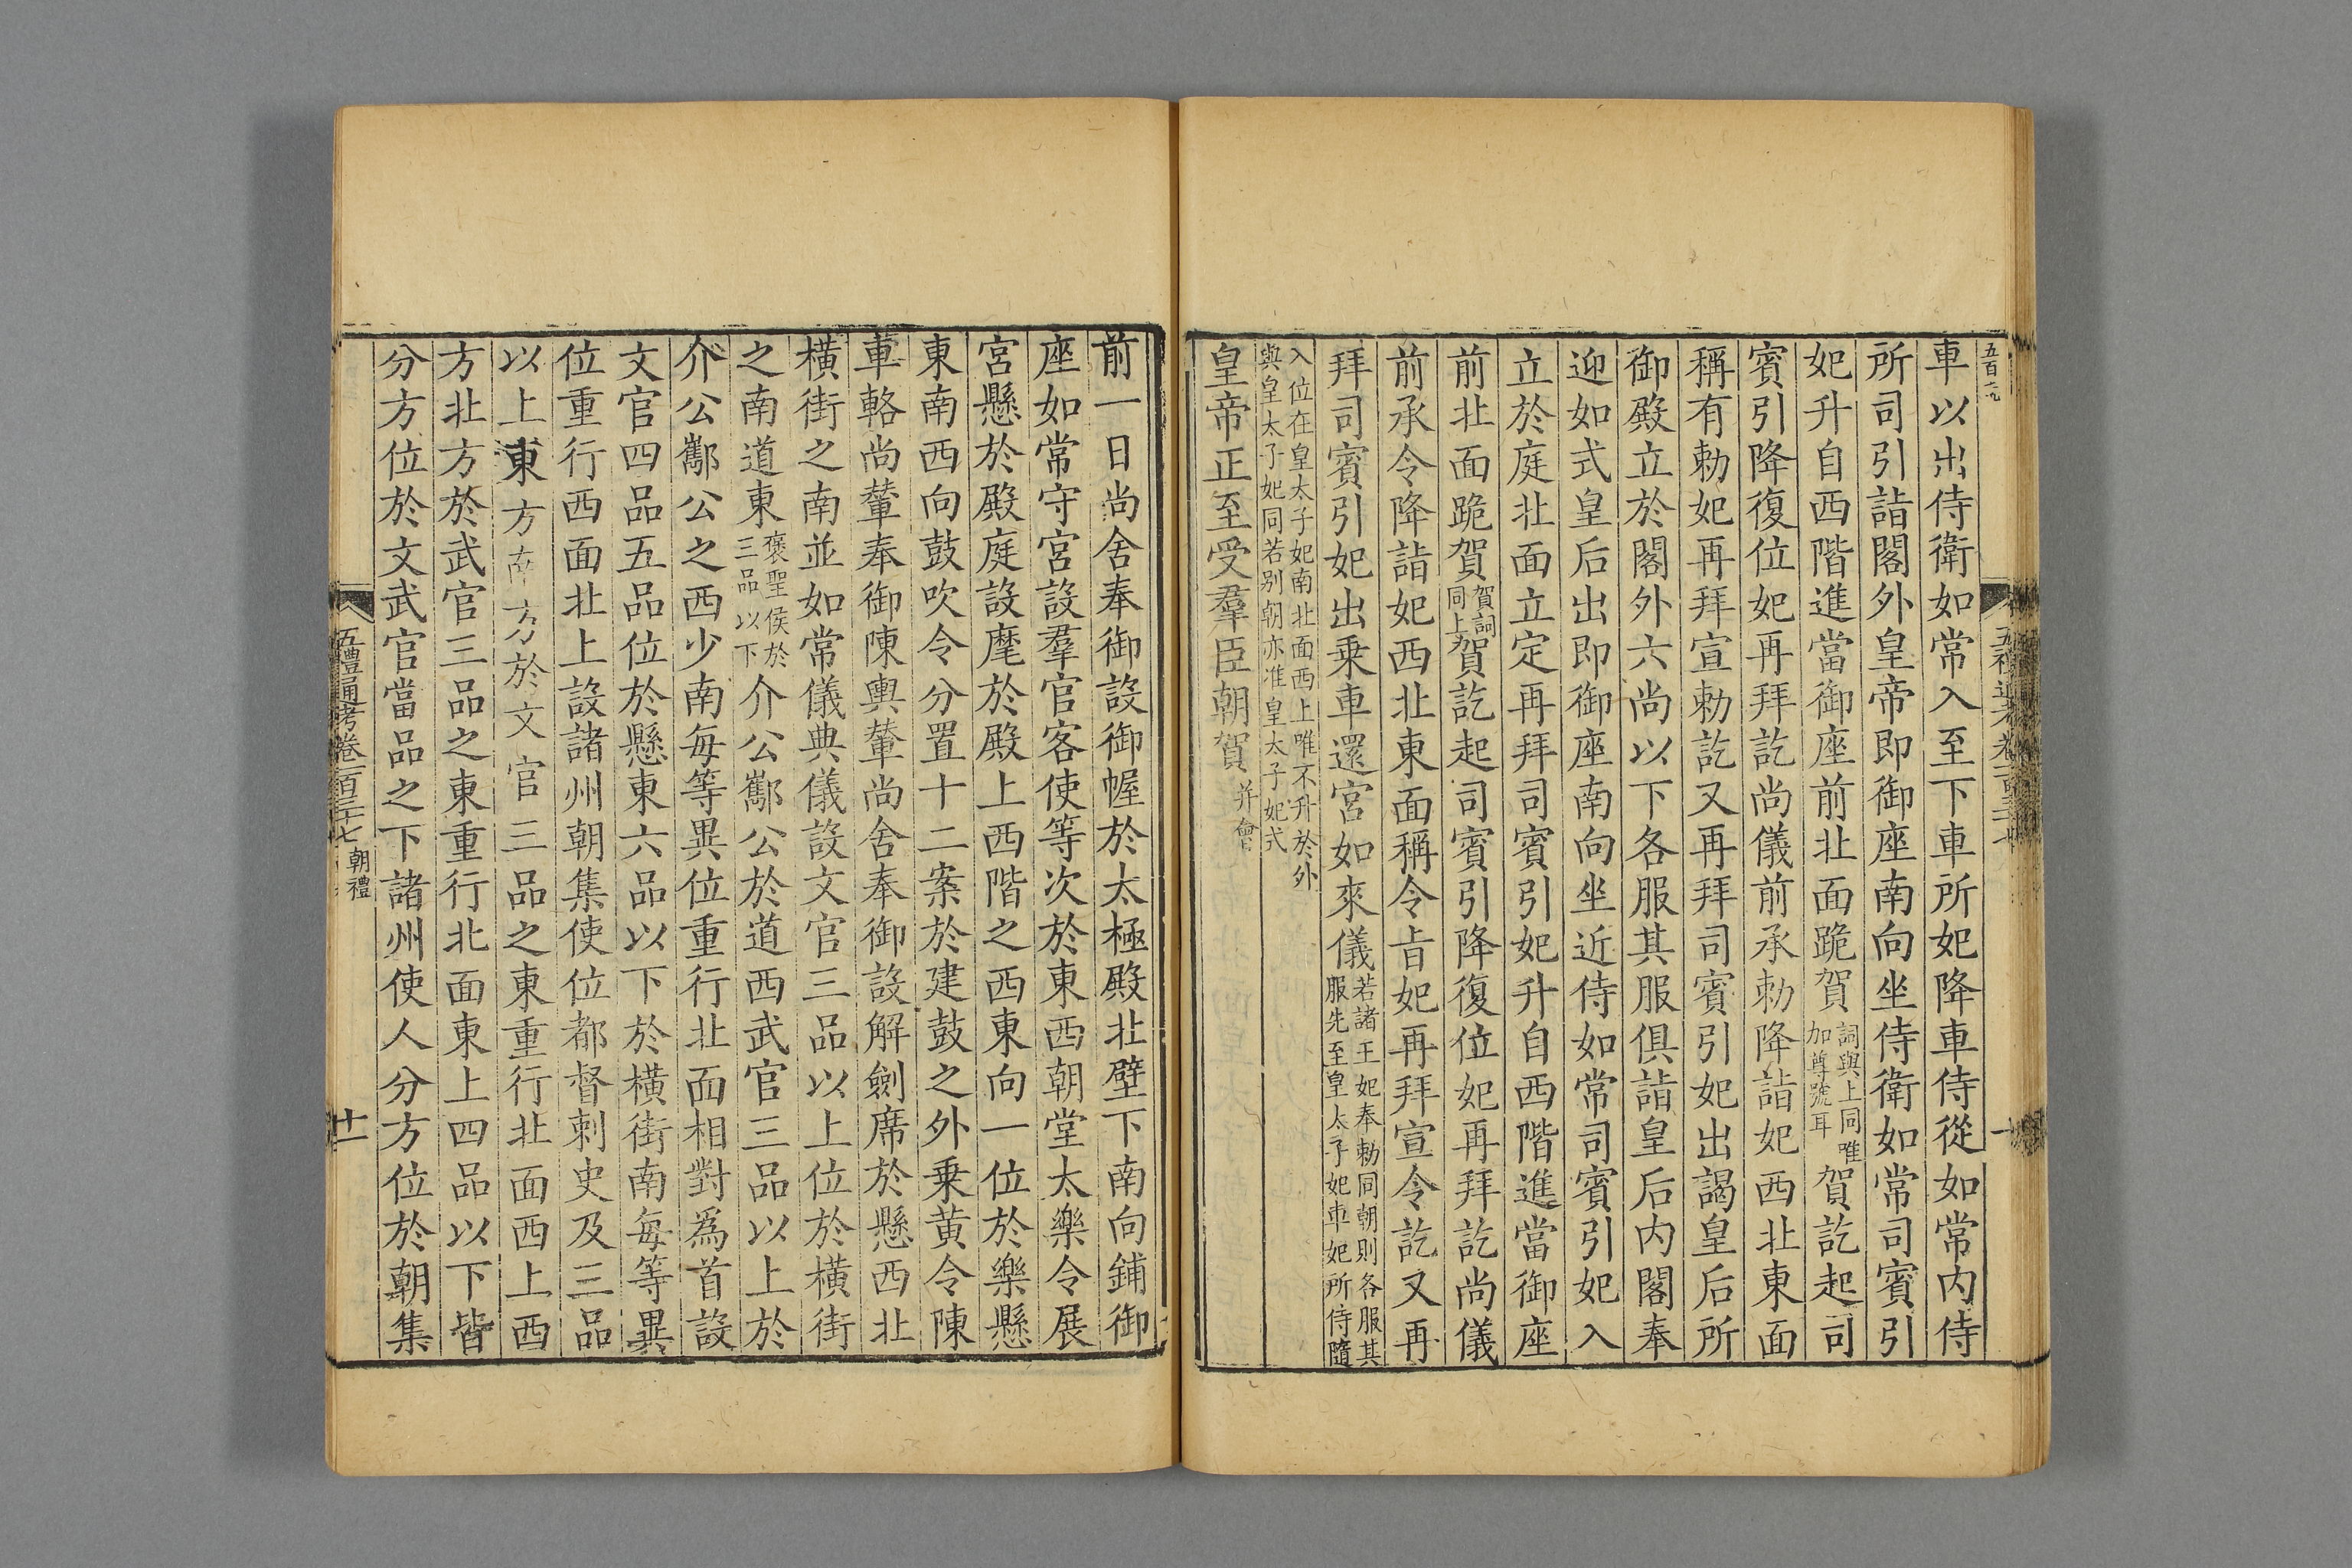 車以出侍衛如常入至下車所妃降車侍從如常内侍
所司引詣閤外皇帝即御座南向坐侍衛如常司賓引
妃升自西階進當御座前北面跪賀詞與上同唯加尊號耳賀訖起司
賓引降復位妃再拜訖尚儀前承勅降詣妃西北東面
稱有勅妃再拜宣勅訖又再拜司賓引妃出謁皇后所
御殿立於閤外六尚以下各服其服俱詣皇后内閤奉
迎如式皇后出即御座南向坐近侍如常司賓引妃入
立於庭北面立定再拜司賓引妃升自西階進當御座
前北面跪賀賀詞同上賀訖起司賓引降復位妃再拜訖尚儀
前承令降詣妃西北東面稱令旨妃再拜宣令訖又再
拜司賓引妃出乗車還宮如來儀若諸王妃奉勅同朝則各服其服先至皇太子妃車妃所侍隨
入位在皇太子妃南北面西上唯不升於外
與皇太子妃同若别朝亦准皇太子妃式
皇帝正至受羣臣朝賀并會
前一日尚舍奉御設御幄於太極殿北壁下南向鋪御
座如常守宮設羣官客使等次於東西朝堂太樂令展
宮懸於殿庭設麾於殿上西階之西東向一位於樂懸
東南西向鼓吹令分置十二案於建鼓之外乗黄令陳
車輅尚輦奉御陳輿輦尚舍奉御設解劍席於懸西北
橫街之南並如常儀典儀設文官三品以上位於橫街
之南道東褒聖侯於三品以下介公酅公於道西武官三品以上於
介公酅公之西少南每等異位重行北面相對爲首設
文官四品五品位於懸東六品以下於橫街南每等異
位重行西面北上設諸州朝集使位都督刺史及三品
以上東方南方於文官三品之東重行北面西上西
方北方於武官三品之東重行北面東上四品以下皆
分方位於文武官當品之下諸州使人分方位於朝集
五禮通考卷一百三十七 朝禮
十一